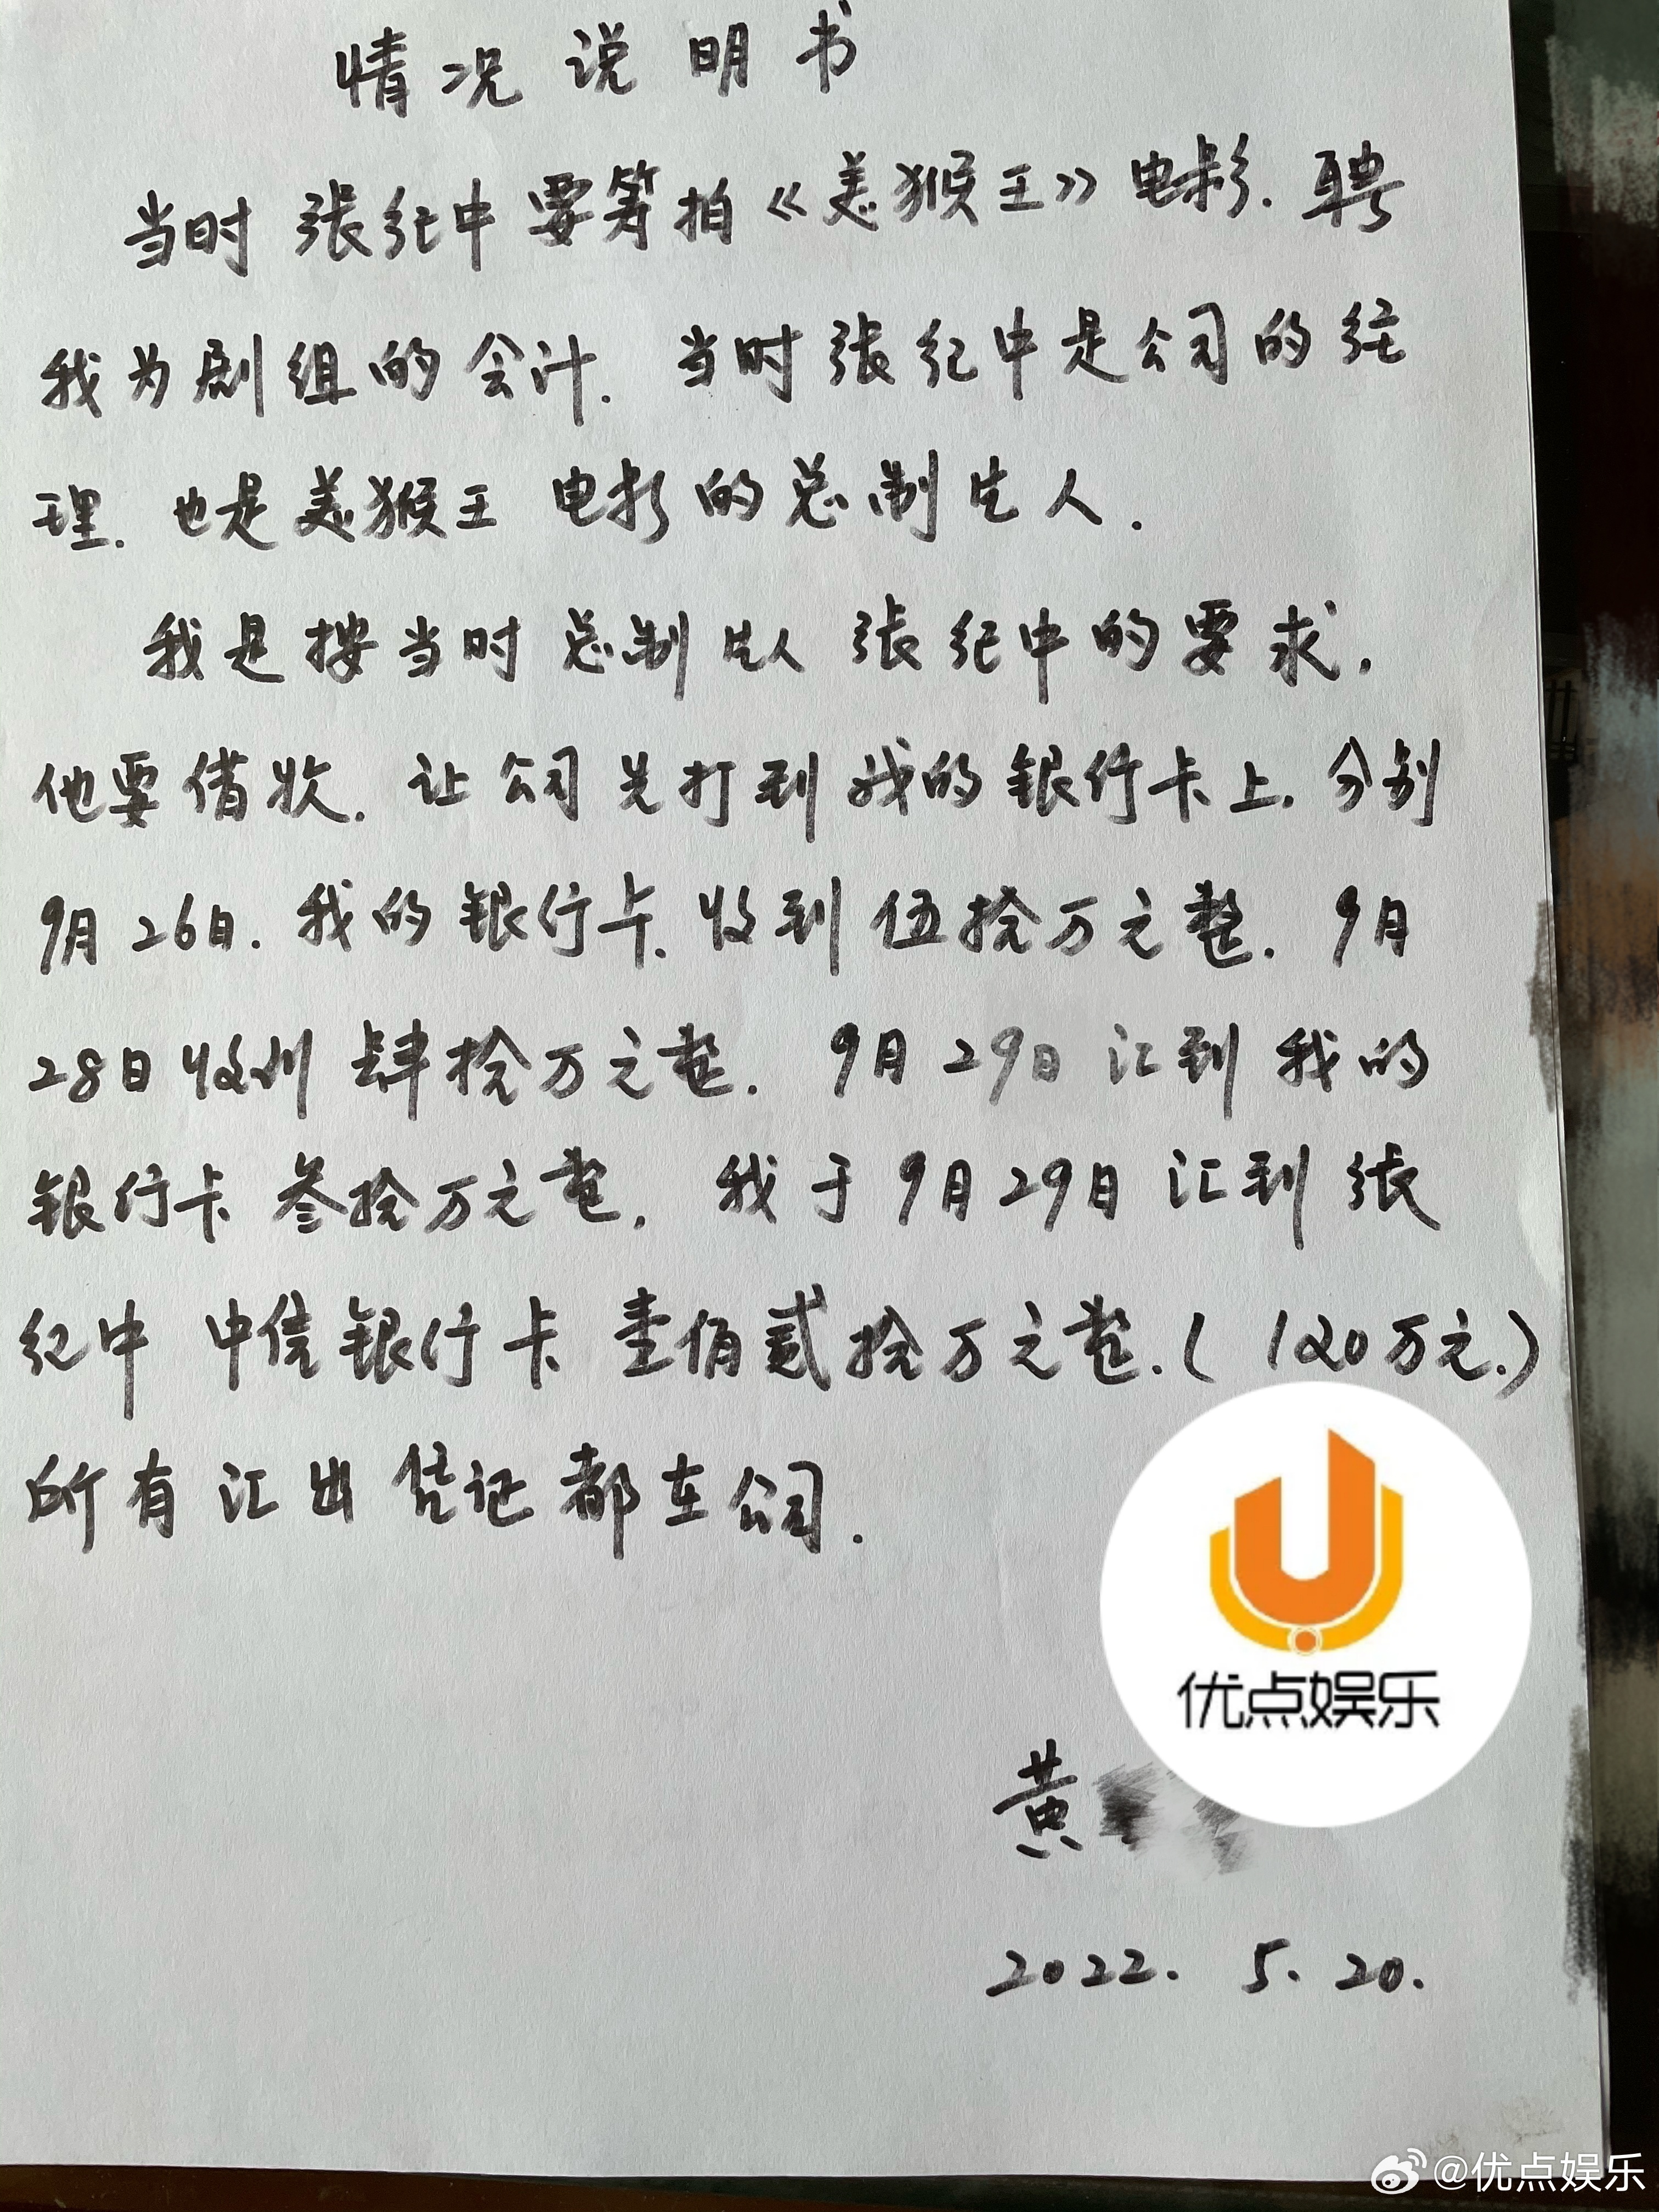 情况说明书
当时张纪中要筹拍《美猴王》电影.聘
我为剧组的会计.当时张纪中是公司的经
理.也是美猴王电影的总制片人.
我是按当时总制片人张纪中的要求,
他要借款.让公司先打到我的银行卡上.分别
9月26日.我的银行卡.收到伍拾万元整.9月
28日收到肆拾万元整.9月29日汇到我的
银行卡叁拾万元整.我于9月29日汇到张
纪中中信银行卡壹佰贰拾万元整.(120万元.)
所有汇出凭证都在公司.
优点娱乐
黄
2022.5.20.
@优点娱乐